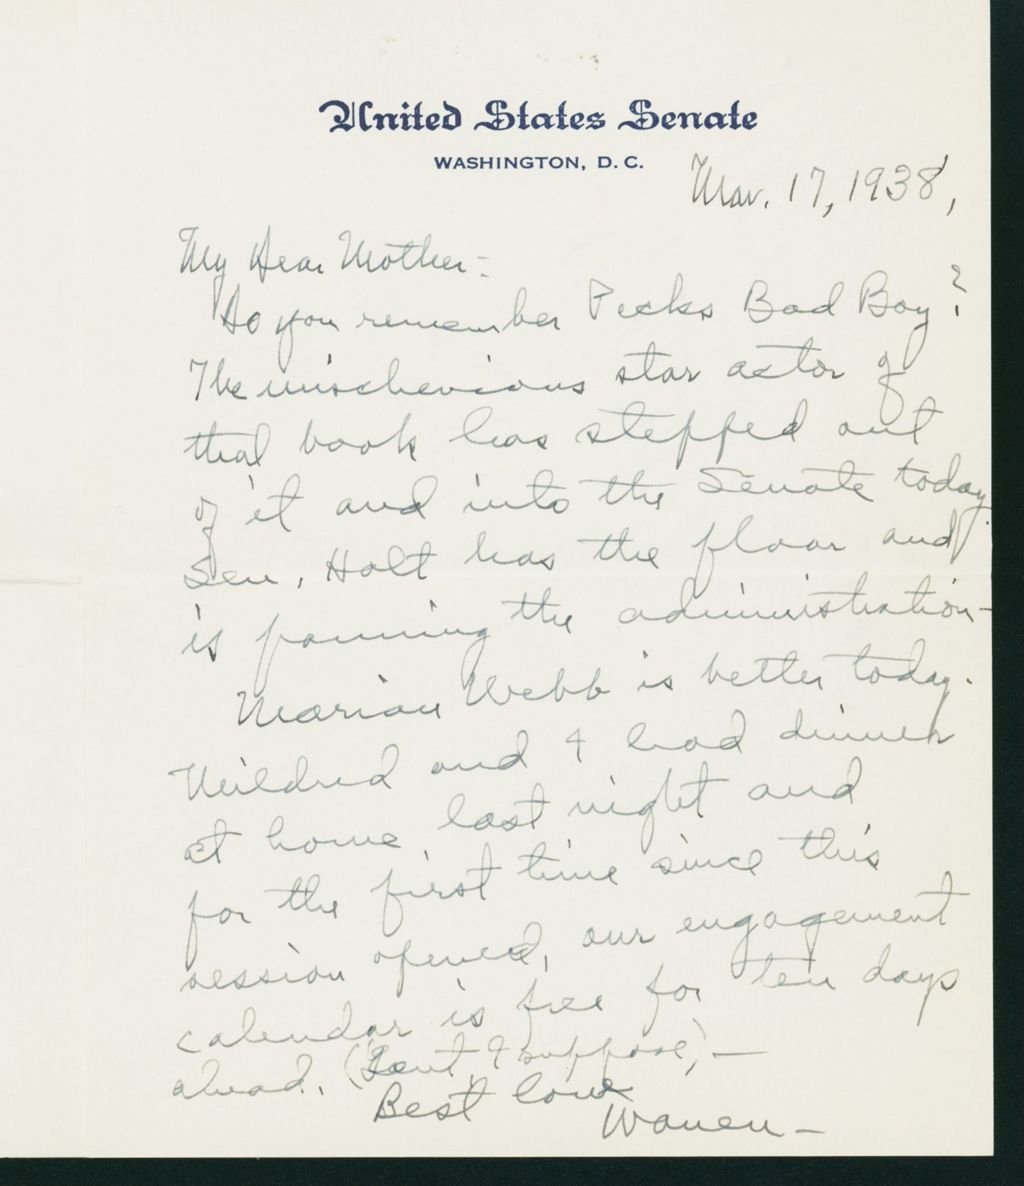 United States Senate
WASHINGTON, D. C.
Mar. 17, 1938,
My Dear Mother:
Do you remember Pecks Bad Boy?
The mischevious star actor of
that book has stepped out
of it and into the Senate today.
Sen. Holt has the floor and
is panning the administration-
Marian Webb is better today.
Mildred and I had dinner
at home last night and
for the first time since this
session opened, our engagement
calendar is free for ten days
ahead. (Lent, I suppose,) —
Best love
Warren —